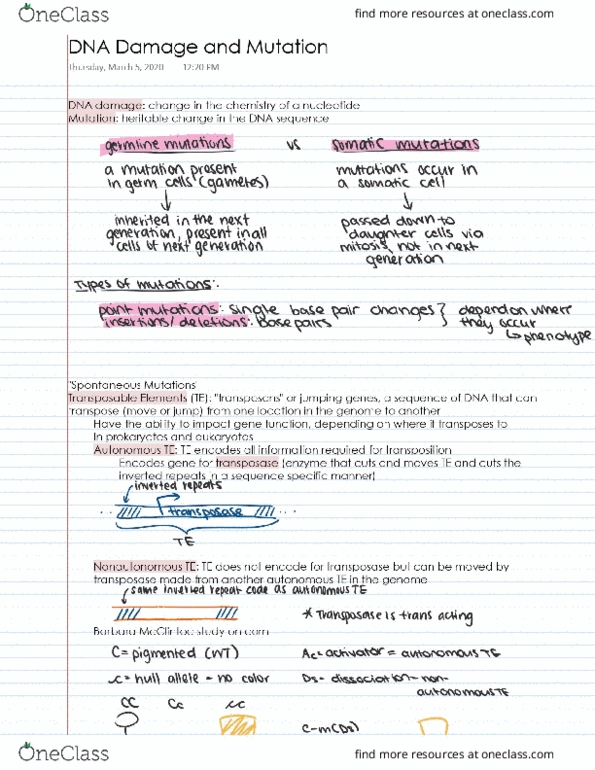 OneClass
find more resources at oneclass.com
DNA Damage and Mutation
Thursday, March 5, 2020 12:20 PM
DNA damage: change in the chemistry of a nucleotide
Mutation: heritable change in the DNA sequence
germline mutations vs somatic mutations
a mutation present
in germ cells (gametes)
mutations occur in
a somatic cell
inherited in the next
generation, present in all
cells of next generation
passed down to
daughter cells via
mitosis, not in next
generation
Types of mutations:
point mutations: single base pair changes
insertions/deletions: base pairs
} depend on where
they occur
↳ phenotype
'Spontaneous Mutations'
Transposable Elements (TE): "transposons" or jumping genes, a sequence of DNA that can
transpose (move or jump) from one location in the genome to another
Have the ability to impact gene function, depending on where it transposes to
In prokaryotes and eukaryotes
Autonomous TE: TE encodes all information required for transposition
Encodes gene for transposase (enzyme that cuts and moves TE and cuts the
inverted repeats in a sequence specific manner)
inverted repeats
transposase
TE
Nonautonomous TE: TE does not encode for transposase but can be moved by
transposase made from another autonomous TE in the genome
same inverted repeat code as autonomous TE
* Transposase is trans acting
Barbara McClintoc study on corn
C = pigmented (WT)
c = null allele - no color
Ac = activator = autonomous TE
Ds - dissociation - non-
autonomous TE
CC Cc cc
c-m(Ds)
OneClass
find more resources at oneclass.com